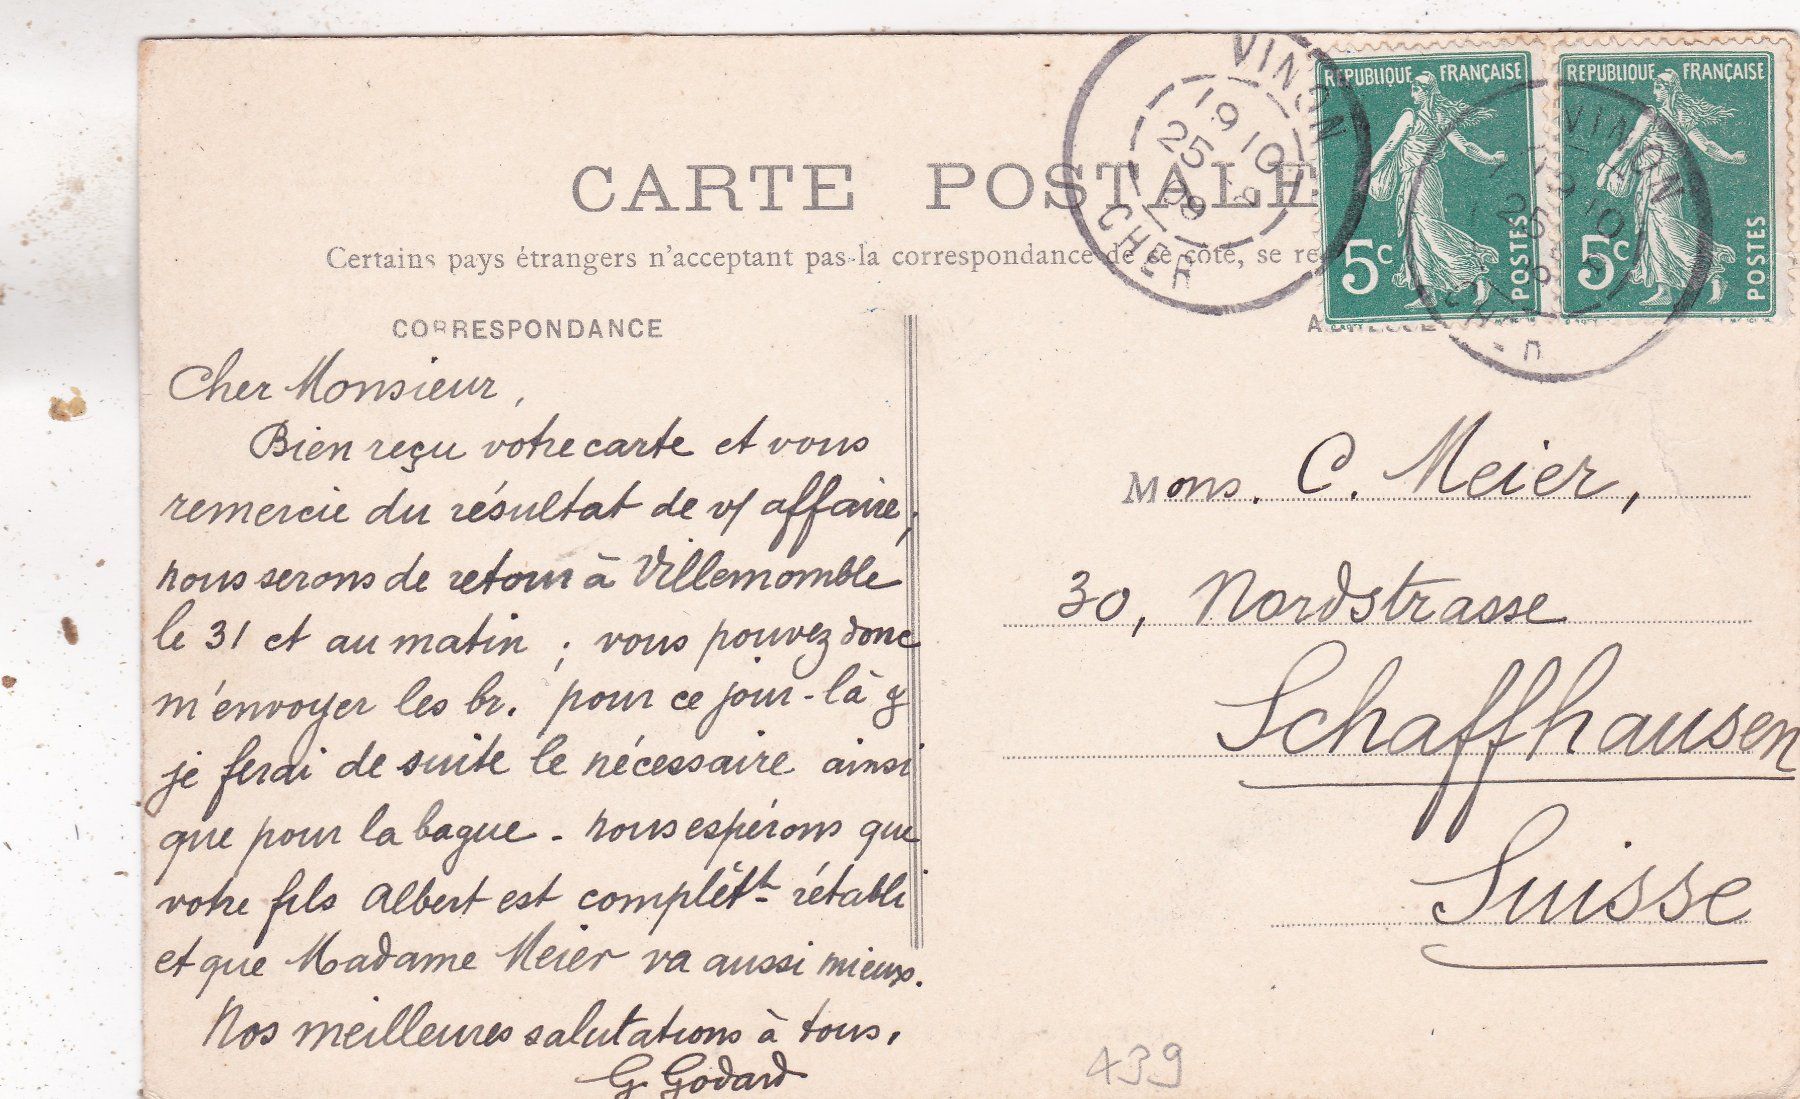 CARTE POSTALE
Certains pays étrangers n'acceptant pas la correspondance de ce côté, se re
CORRESPONDANCE
Cher Monsieur,
Bien reçu votre carte et vous
remercie du résultat de v/ affaire;
nous serons de retour à Villemomble
le 31 ct au matin ; vous pouvez donc
m'envoyer les br. pour ce jour-là &
je ferai de suite le nécessaire ainsi
que pour la bague - nous espérons que
votre fils Albert est complètt rétabli
et que Madame Meier va aussi mieux.
Nos meilleures salutations à tous.
G Godard
VINON
19 10
25 8
09
CHER
REPUBLIQUE FRANÇAISE
5c
POSTES
REPUBLIQUE FRANÇAISE
5c
POSTES
VINON
10
25
CHER
Mons. C. Meier,
30, Nordstrasse
Schaffhausen
Suisse
439